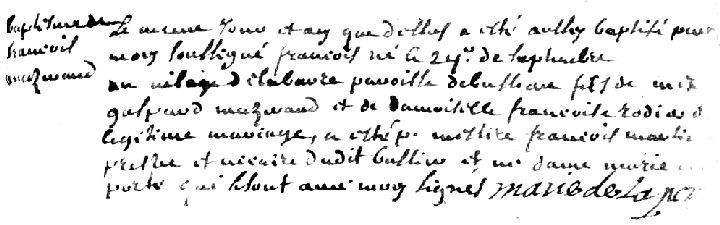 baptistere de
francois
mazuaud
Le mesme jour et an que dessus a esté aussy baptisé par
moy soussigné francois né le 24e de septembre
au vilage de labavre paroisse de bussiere fils de me
gaspard mazuaud et de damoiselle francoise rodier de
legitime mariage, a esté p messire francois martin
prestre et vicaire dudit bussiere et me dame marie
porte qui se sont avec moy signés marie de la por